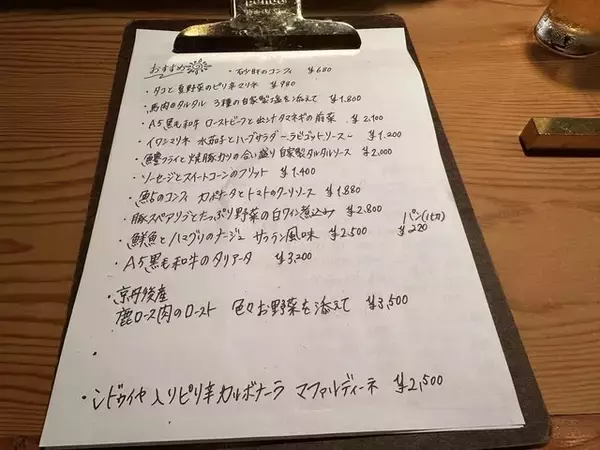 おすすめ
・砂肝のコンフィ ¥680
・タコと夏野菜のピリ辛マリネ ¥980
・馬肉のタルタル 3種の自家製塩を添えて ¥1.800
・A5黒毛和牛 ローストビーフと出汁タマネギの前菜 ¥2,100
・イワシマリネ 水茄子とハーブサラダ ーラビゴットソースー ¥1.200
・鱧フライと焼豚カリの合い盛り 自家製タルタルソース ¥2,000
・ソーセージとスイートコーンのフリット ¥1.400
・鮎のコンフィ カポナータとトマトのクーリソース ¥1,880
・豚スペアリブとたっぷり野菜の白ワイン煮込み ¥2.800
パン(1ヶ)
¥220
・鮮魚とハマグリのナージュ サフラン風味 ¥2,500
・A5黒毛和牛のタリアータ ¥3,200
・京丹後産
鹿ロース肉のロースト 色々お野菜を添えて ¥3,500
・ンドゥイヤ入りピリ辛カルボナーラ マファルディーネ ¥2,500